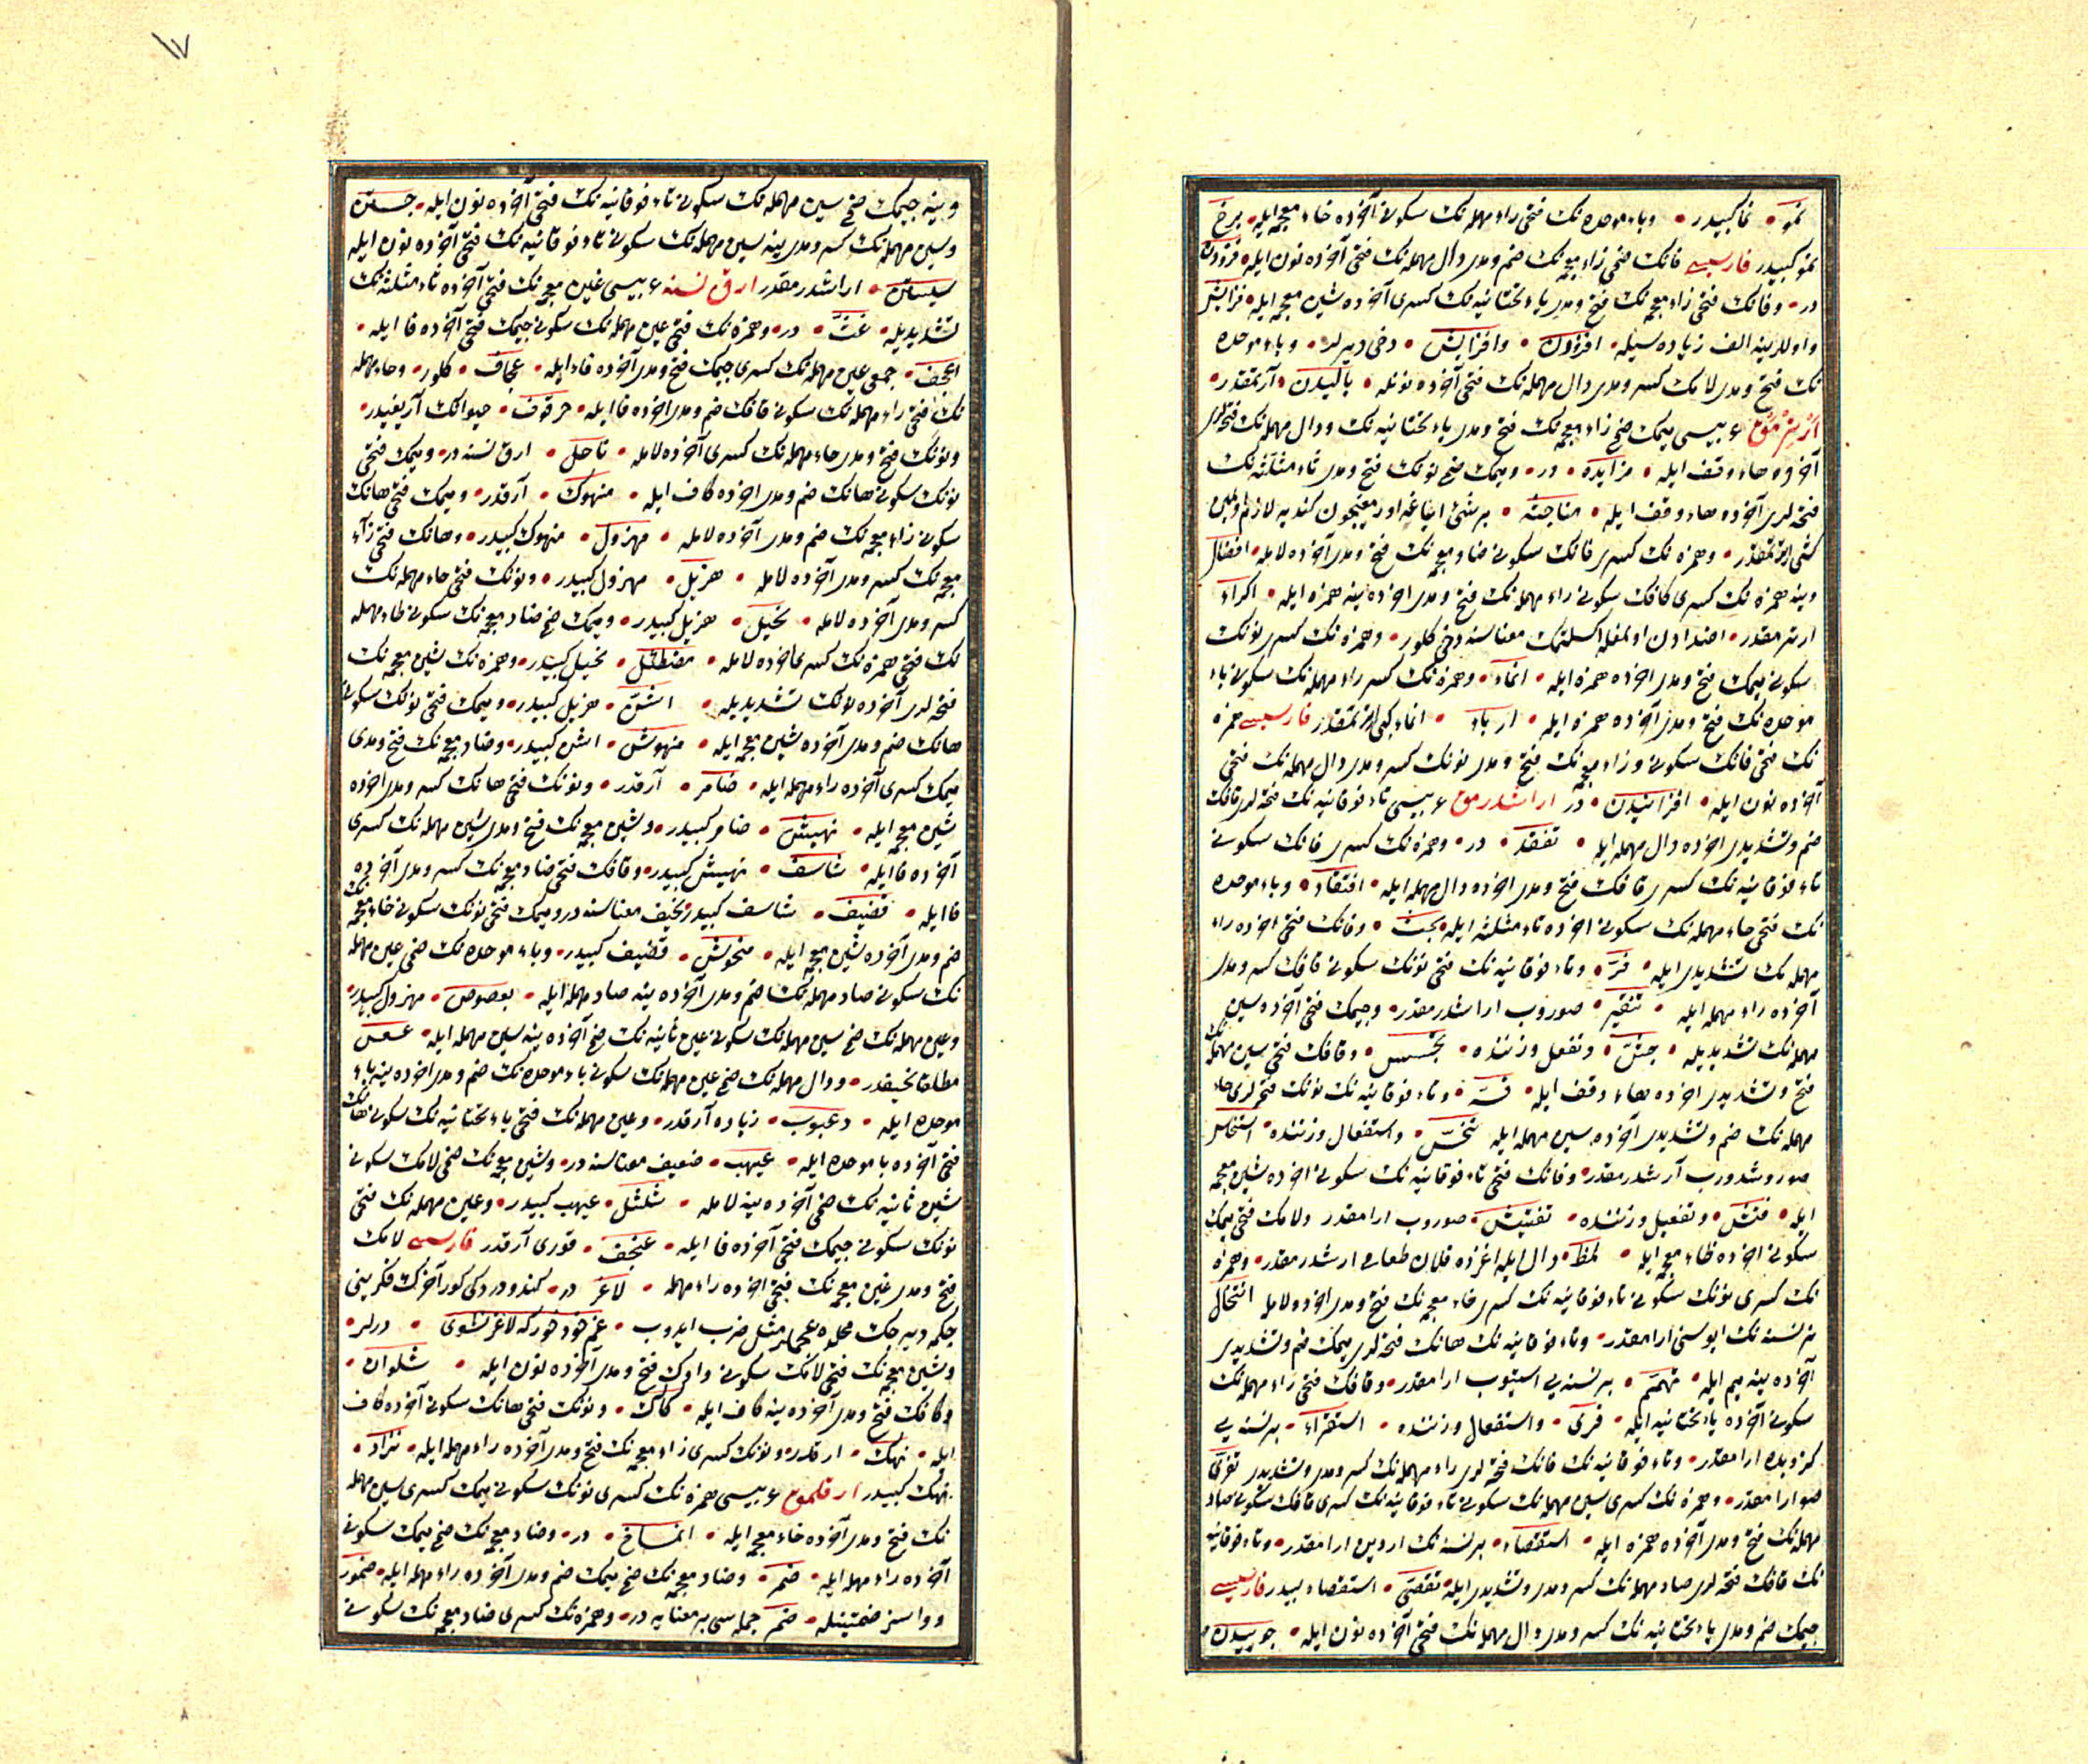 نمو • نما كبيدر • وباء موحده نك فتحى راء مهمله نك سكونى آخرده خاء معجمه ايله • برخ
نمو كبيدر فارسيسى فانك ضمى زاء معجمه نك ضم ومدى دال مهمله نك فتحى آخرده نون ايله • فزودن
در • وفانك فتحى زاء معجمه نك فتح ومدى ياء تحتانيه نك كسرى آخرده شين معجمه ايله • فزايش
واوللرينه الف زياده سيله • افزودن • وافزايش • دخى ديرلر • وباء موحده
نك فتح ومدى لامك كسر ومدى دال مهمله نك فتحى آخرده نونله • باليدن • آرتمقدر •
آرترمق عربيسى ميمك ضمى زاء معجمه نك فتح ومدى ياء تحتانيه نك ودال مهمله نك فتحه لرى
آخرده هاء وقف ايله • مزايده • در • وميمك ضمى نونك فتح ومدى ثاء مثلثه نك
فتحه لرى آخرده هاء وقف ايله • مناجثه • برشئ
وهمزه نك كسرى فانك سكونى ضاد معجمه نك فتح ومدى آخرده لامله • افضال
وينه همزه نك كسرى كافك سكونى راء مهمله نك فتح ومدى آخرده ينه همزه ايله • اكراء
ارترمقدر • اضداددن اولمغله اكسلتمك معناسنه دخى كلور • وهمزه نك كسرى نونك
سكونى ميمك فتح ومدى آخرده همزه ايله • انماء • وهمزه نك كسرى راء مهمله نك سكونى باء
موحده نك فتح ومدى آخرده همزه ايله • ارباء • انماء كبى ارترمقدر فارسيسى همزه
نك فتحى فانك سكونى وزاء معجمه نك فتح ومدى نونك كسر ومدى دال مهمله نك فتحى
آخرده نون ايله • افزانيدن • در اراشدرمق عربيسى تاء فوقانيه نك فتحه لرى قافك
ضم وتشديدى آخرده دال مهمله ايله • تفقد • در • وهمزه نك كسرى فانك سكونى
تاء فوقانيه نك كسرى قافك فتح ومدى آخرده دال مهمله ايله • افتقاد • وباء موحده
نك فتحى حاء مهمله نك سكونى آخرده ثاء مثلثه ايله • بحث • وفانك فتحى آخرده راء
مهمله نك تشديدى ايله • فرّ • وتاء فوقانيه نك فتحى نونك سكونى قافك كسر ومدى
آخرده راء مهمله ايله • تنقير • صوروب اراشدرمقدر • وجيمك فتحى آخرده سين
مهمله نك تشديديله • جسّ • وتفعل وزننده • تجسس • وقافك فتحى سين مهمله نك
فتح وتشديدى آخرده هاء وقف ايله • قسّه • وتاء فوقانيه نك نونك فتحه لرى حاء
مهمله نك ضم وتشديدى آخرده سين مهمله ايله تنحّس • واستفعال وزننده • استنحاس
صوروشدورب آرشدرمقدر • وفانك فتحى تاء فوقانيه نك سكونى آخرده شين معجمه
ايله • فتش • وتفعيل وزننده • تفتيش • صوروب ارامقدر ولامك فتحى ميمك
سكونى آخرده ظاء معجمه ايله • لمظ • دال ايله اغزده قلان طعامى ارشدرمقدر • وهمزه
نك كسرى نونك سكونى تاء فوقانيه نك كسرى خاء معجمه نك فتح ومدى آخرده لامله انتخال
برنسنه نك ايوسنى ارامقدر • وتاء فوقانيه نك هانك فتحه لرى ميمك ضم وتشديدى
آخرده ينه ميم ايله • تهمم • برنسنه يى استيوب ارامقدر • وقافك فتحى راء مهمله نك
سكونى آخرده ياء تحتانيه ايله • قرى • واستفعال وزننده • استقراء • برنسنه يى
كزوبده ارامقدر • وتاء فوقانيه نك فانك فتحه لرى راء مهمله نك كسر ومدى وتشديدى تفرّى
صو ارامقدر • وهمزه نك كسرى سين مهمله نك سكونى تاء فوقانيه نك كسرى قافك سكونى صاد
مهمله نك فتح ومدى آخرده همزه ايله • استقصاء • برنسنه نك اردين ارامقدر • وتاء فوقانيه
نك قافك فتحه لرى صاد مهمله نك كسر ومدى وتشديدى ايله • تقصّى • استقصاء كبيدر فارسيسى
جيمك ضم ومدى ياء تحتانيه نك كسر ومدى دال مهمله نك فتحى آخرده نون ايله • جوييدن •
١٧
وينه جيمك ضمى سين مهمله نك سكونى تاء فوقانيه نك فتحى آخرده نون ايله • جستن
وسين مهمله نك كسر ومدى ينه سين مهمله نك سكونى تاء فوقانيه نك فتحى آخرده نون ايله
سيستن • اراشدرمقدر ارق نسنه عربيسى غين معجمه نك فتحى آخرده ثاء مثلثه نك
تشديديله • غثّ • در • وهمزه نك فتحى عين مهمله نك سكونى جيمك فتحى آخرده فا ايله •
اعجف • جمعى عين مهمله نك كسرى جيمك فتح ومدى آخرده فاء ايله • عجاف • كلور • وحاء مهمله
نك فتحى راء مهمله نك سكونى قافك ضم ومدى آخرده فا ايله • حرقوف • حيوانك آريغيدر •
ونونك فتح ومدى حاء مهمله نك كسرى آخرده لامله • ناحل • ارق نسنه در • وميمك فتحى
نونك سكونى هانك ضم ومدى آخرده كاف ايله • منهوك • آرقدر • وميمك فتحى هانك
سكونى زاء معجمه نك ضم ومدى آخرده لامله • مهزول • منهوك كبيدر • وهانك فتحى زاء
معجمه نك كسر ومدى آخرده لامله • هزيل • مهزول كبيدر • ونونك فتحى حاء مهمله نك
كسر ومدى آخرده لامله • نحيل • هزيل كبيدر • وميمك ضمى ضاد معجمه نك سكونى طاء مهمله
نك فتحى همزه نك كسرى آخرده لامله • مضطئل • نحيل كبيدر • وهمزه نك شين معجمه نك
فتحه لرى آخرده نونك تشديديله • اشنّ • هزيل كبيدر • وميمك فتحى نونك سكونى
هانك ضم ومدى آخرده شين معجمه ايله • منهوش • اشن كبيدر • وضاد معجمه نك فتح ومدى
ميمك كسرى آخرده راء مهمله ايله • ضامر • آرقدر • ونونك فتحى هانك كسر ومدى آخرده
شين معجمه ايله • نهيش • ضامر كبيدر • وشين معجمه نك فتح ومدى سين مهمله نك كسرى
آخرده فا ايله • شاسف • نهيش كبيدر • وقافك فتحى ضاد معجمه نك كسر ومدى آخرده
فا ايله • قضيف • شاسف كبيدر نحيف معناسنه در • وميمك فتحى نونك سكونى خاء معجمه نك
ضم ومدى آخرده شين معجمه ايله • منخوش • قضيف كبيدر • وباء موحده نك ضمى عين مهمله
نك سكونى صاد مهمله نك ضم ومدى آخرده ينه صاد مهمله ايله • بعصوص • مهزول كبيدر •
وعين مهمله نك ضمى سين مهمله نك سكونى عين ثانيه نك ضمى آخرده ينه سين مهمله ايله • عسعس
مطلقا نحيفدر • ودال مهمله نك ضمى عين مهمله نك سكونى باء موحده نك ضم ومدى آخرده ينه باء
موحده ايله • دعبوب • زياده آرقدر • وعين مهمله نك فتحى ياء تحتانيه نك سكونى هانك
فتحى آخرده با موحده ايله • عيهب • ضعيف معناسنه در • وشين معجمه نك ضمى لامك سكونى
شين ثانيه نك ضمى آخرده ينه لامله • شلشل • عيهب كبيدر • وعين مهمله نك فتحى
نونك سكونى جيمك فتحى آخرده فا ايله • عنجف • قورى آرقدر فارسيسى لامك
فتح ومدى غين معجمه نك فتحى آخرده راء مهمله • لاغر در •
چكمه ديه جك محلده عجملر مثل ضرب ايدوب • غم خود خور كه لاغر نشوى • ديرلر •
وشين معجمه نك فتحى لامك سكونى واوك فتح ومدى آخرده نون ايله • شلوان •
وكافك فتح ومدى آخرده ينه كاف ايله • كاك • ونونك فتحى هانك سكونى آخرده كاف
ايله • نهك • ارقدر • ونونك كسرى زاء معجمه نك فتح ومدى آخرده راء مهمله ايله • نزار •
نهك كبيدر ارقلمق عربيسى همزه نك كسرى نونك سكونى ميمك كسرى سين مهمله
نك فتح ومدى آخرده خاء معجمه ايله • انمساخ • در • وضاد معجمه نك ضمى ميمك سكونى
آخرده راء مهمله ايله • ضمر • وضاد معجمه نك ضمى ميمك ضم ومدى آخرده راء مهمله ايله • ضمور
وواوسز ضمتينله • ضمر جمله سى بر معنايه در • وهمزه نك كسرى ضاد معجمه نك سكونى